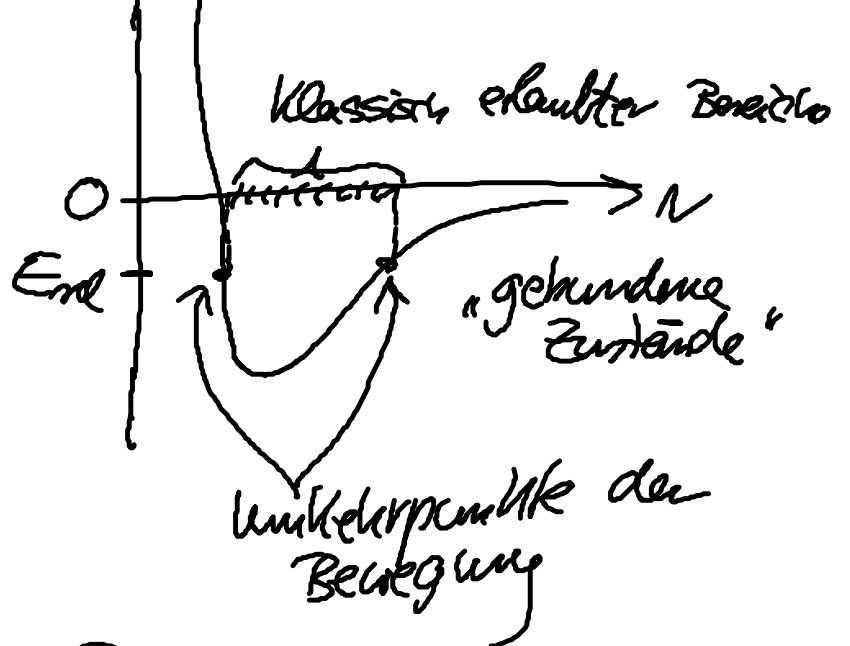 Klassisch erlaubter Bereich
0
r
„gebundene
Zustände"
Umkehrpunkte der
Bewegung